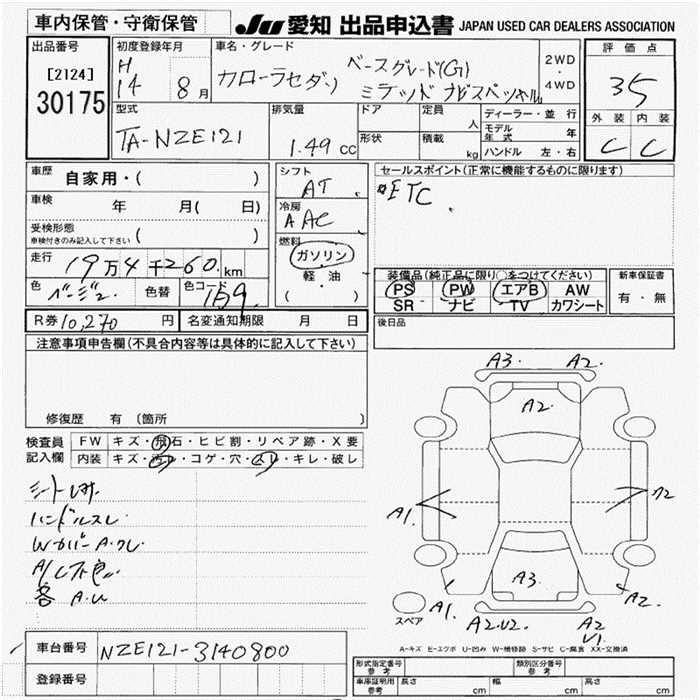 車内保管・守衛保管
JU 愛知 出品申込書 JAPAN USED CAR DEALERS ASSOCIATION
出品番号
[2124]
30175
初度登録年月
H
14 8月
車名・グレード
カローラセダン
ベースグレード(G)
2WD
・
4WD
評価点
35
外装 内装
C C
型式
TA-NZE121
排気量
1.49 cc
ドア
定員
人
形状
積載
kg
ディーラー・並行
モデル年式 年
ハンドル 左・右
車歴 自家用・( )
車検 年 月( 日)
受検形態
車検付きのみ記入して下さい ( )
走行 19万4千260km
色 ベージュ 色替 色コード 1B9
シフト
AT
冷房
AAC
燃料
ガソリン
軽・油
( )
セールスポイント(正常に機能するものに限ります)
ETC
装備品(純正品に限り○をつけてください)
PS PW エアB AW
SR ナビ TV カワシート
新車保証書
有・無
R券 10,270 円 名変通知期限 月 日
後日品
注意事項申告欄(不具合内容等は具体的に記入して下さい)
修復歴 有 〔箇所 〕
検査員
記入欄
FW キズ・飛石・ヒビ割・リペア跡・X要
内装 キズ・汚レ・コゲ・穴・スレ・キレ・破レ
ハンドルスレ
A3. A2.
A2.
A1.
A2
A3.
A1.
A2.
A2.U2.
A2
U1.
スペア
A-キズ E-エクボ U-凹み W-補修跡 S-サビ C-腐食 XX-交換済
車台番号 NZE121-3140800
登録番号
形式指定番号
参考
類別区分番号
参考
車庫証明用
参考
長さ cm 幅 cm 高さ cm